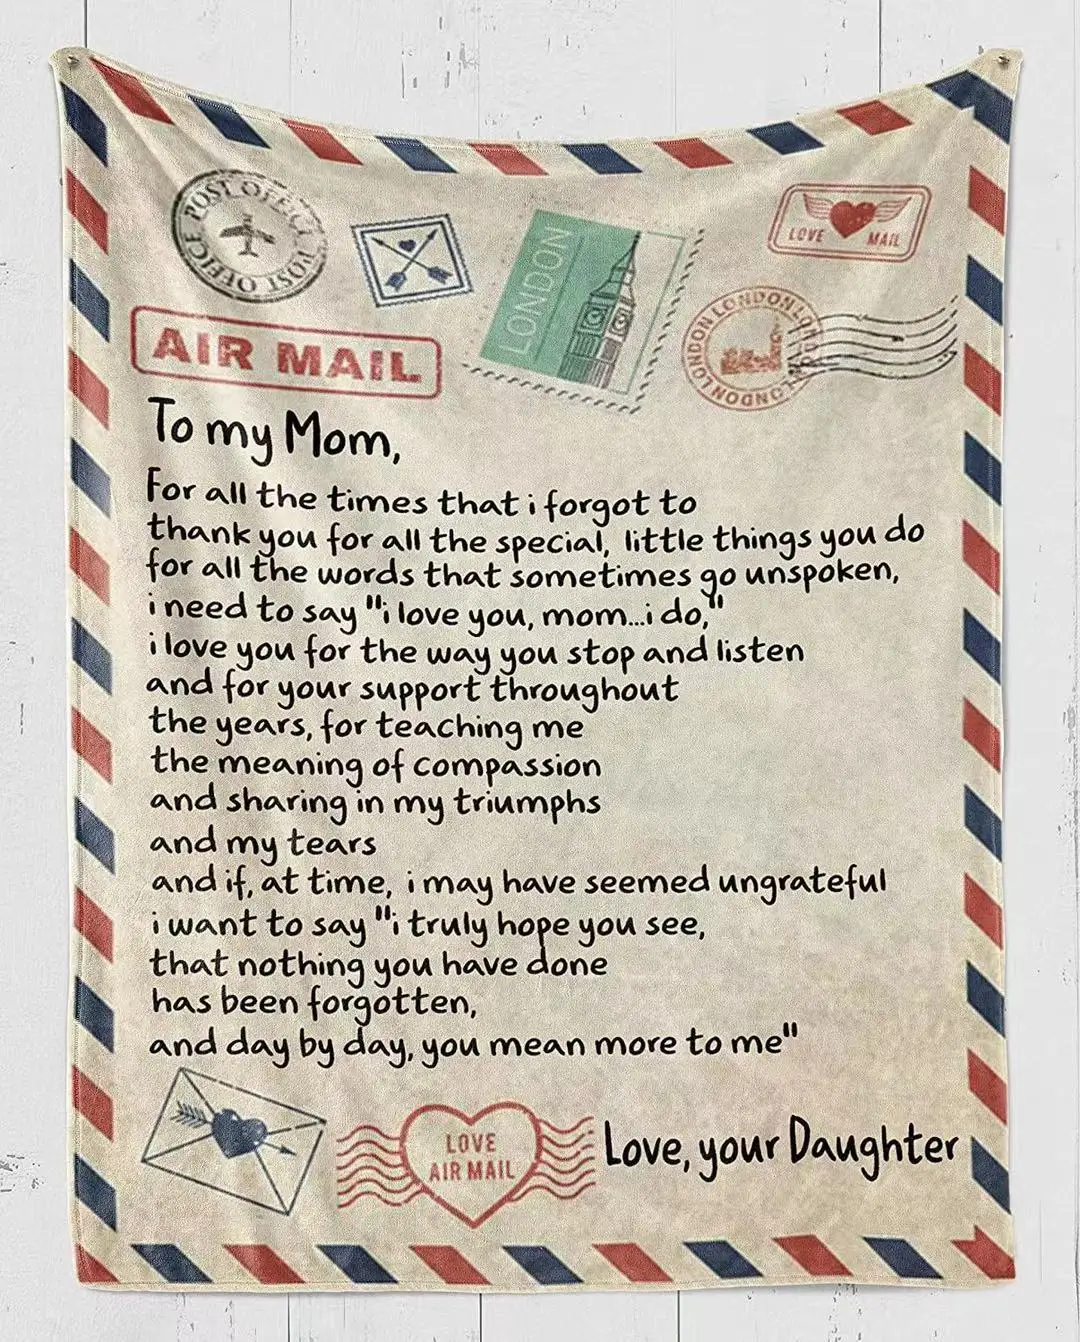 POST OFFICE POST OFFICE
LONDON
LOVE MAIL
LONDON LONDON LONDON LONDON
AIR MAIL
To my Mom,
For all the times that i forgot to
thank you for all the special, little things you do
for all the words that sometimes go unspoken,
i need to say "i love you, mom...i do,"
i love you for the way you stop and listen
and for your support throughout
the years, for teaching me
the meaning of compassion
and sharing in my triumphs
and my tears
and if, at time, i may have seemed ungrateful
i want to say "i truly hope you see,
that nothing you have done
has been forgotten,
and day by day, you mean more to me"
LOVE
AIR MAIL
Love, your Daughter